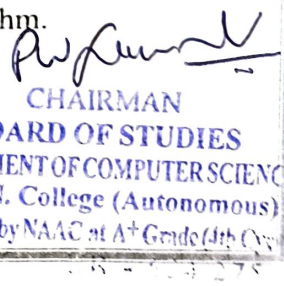 hm.
CHAIRMAN
ARD OF STUDIES
MENT OF COMPUTER SCIENC
. College (Autonomous)
by NAAC at A+ Grade (4th Cyc